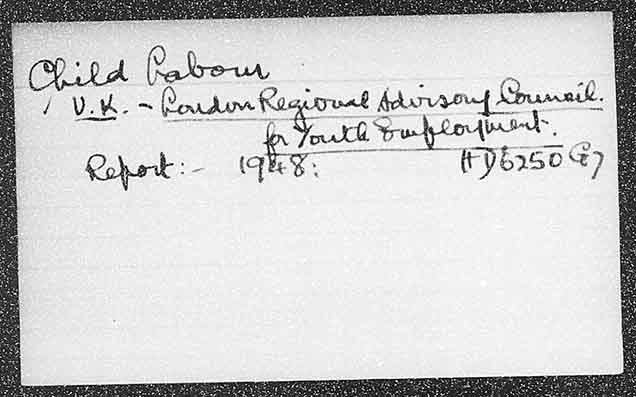 Child Labour
U.K. - London Regional Advisory Council.
for Youth Employment.
Report:- 1948: HD6250 G7